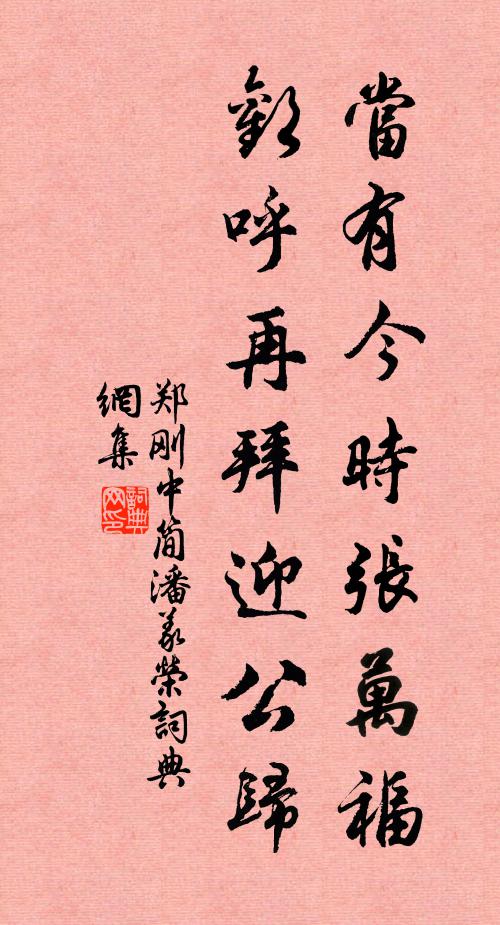 當有今時張萬福
歡呼再拜迎公歸
郑刚中简潘义榮詞典
網集
詞典
网印